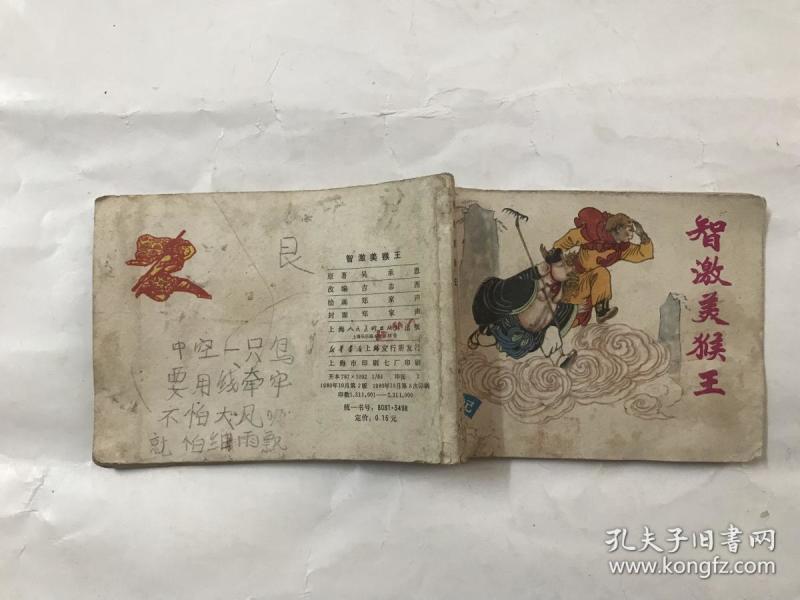 智激美猴王
记
艮
中空一只鸟
要用线牵牢
不怕大风吹
就怕细雨飘
智激美猴王
原著 吴承恩
改编 吉志西
绘画 郑家声
封面 郑家声
上海人民美术出版社出版
新华书店上海发行所发行
上海市印刷七厂印刷
开本787×1092 1/64 印张 2
1980年10月第2版 1980年10月第5次印刷
统一书号：8081·5498
定价：0.16元
孔夫子旧书网
www.kongfz.com